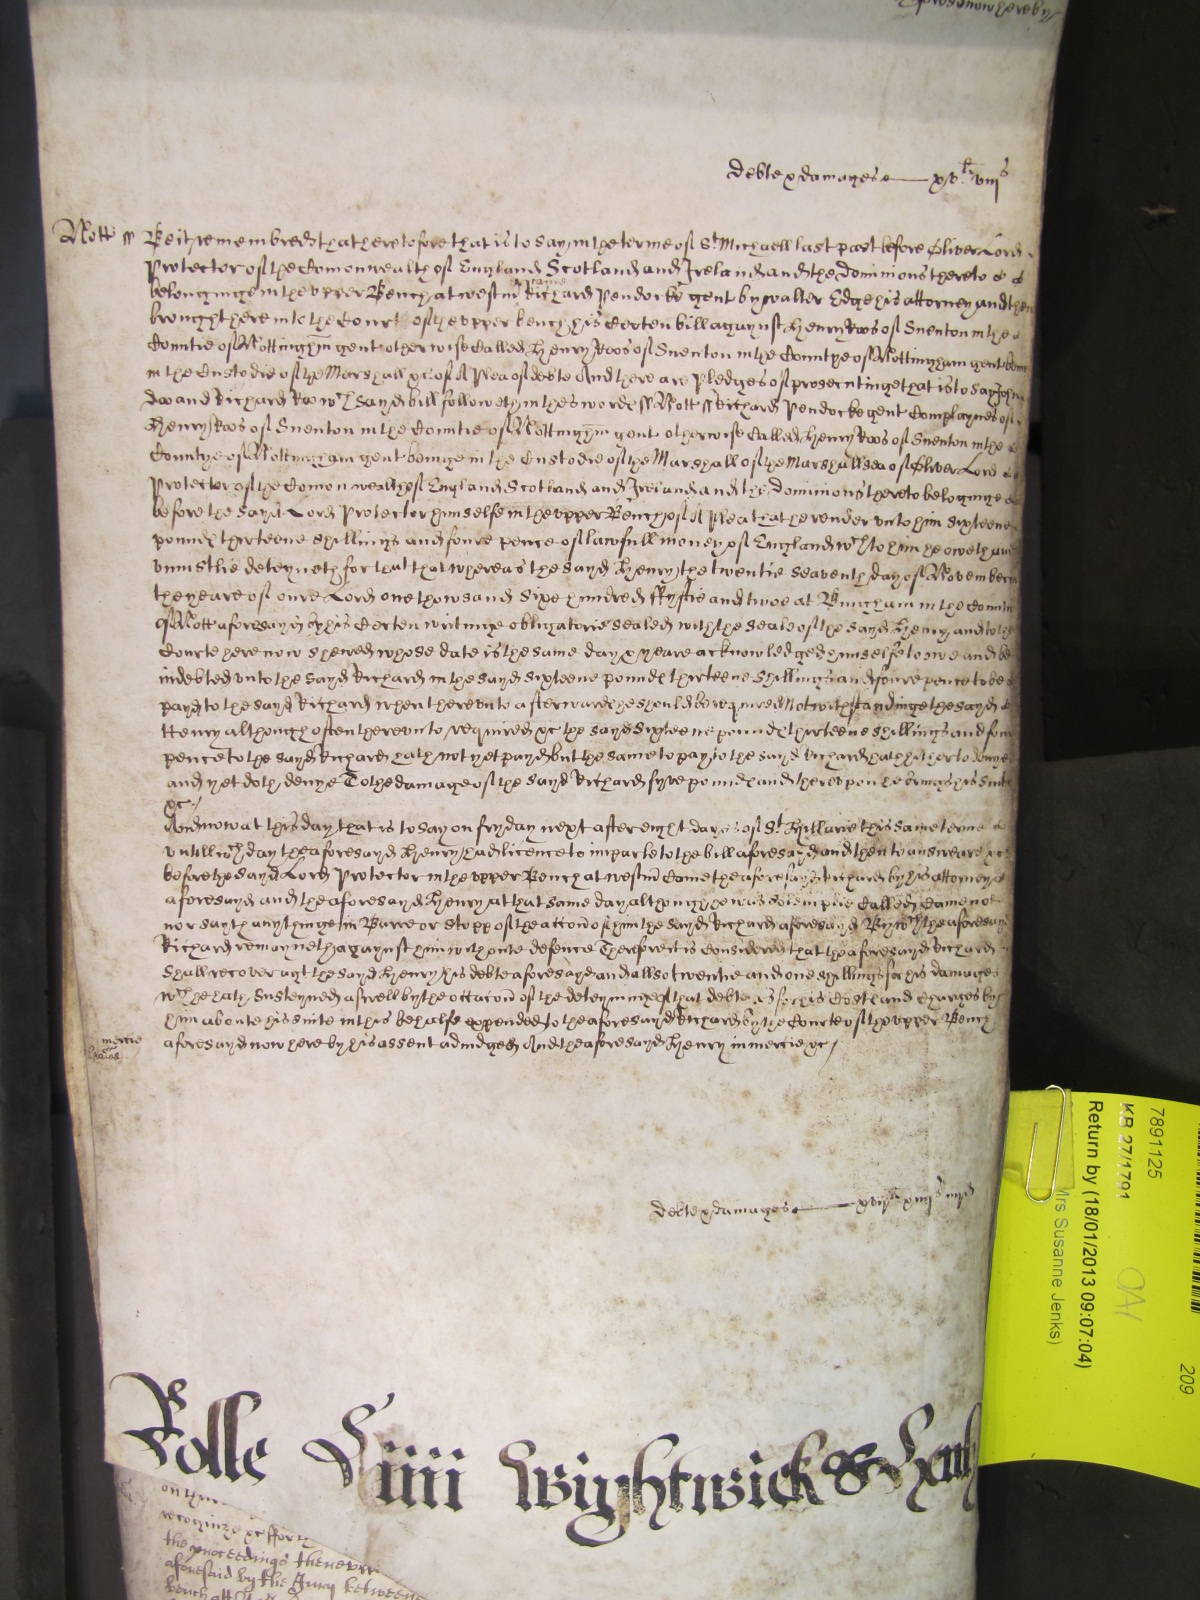 debte & damages xv li viij s
Nott ss Be it remembred that heretofore that is to say in the terme of St Michaell last past before Oliver Lord
Protector of the Comonwealth of England Scotland and Ireland and the dominions thereto
belonginge in the upper Bench at westm Came Richard Pendocke gent by walter Edge his attorney and then
brought here into the Court of the upper bench his Certen bill against Henry Roos of Snenton in the
Countie of Nottingham gent otherwise Called Henry Roos of Snenton in the Countye of Nottingham gent
in the Custodie of the Marshall &c of A Plea of debte And there are Pledges of prosecutinge that is to say John
Doo and Richard Roo wch sayd bill followeth in these words ss Nott ss Richard Pendocke gent Complaynes of
Henry Roos of Snenton in the Countie of Nottingham gent otherwise Called Henry Roos of Snenton in the
Countye of Nottingham gent beinge in the Custodie of the Marshall of the Marshallsea of Oliver Lord
Protector of the Comonwealth of England Scotland and Ireland and the dominions thereto belonginge
before the sayd Lord Protector himselfe in the upper Bench of A Plea that he render unto him sixteene
pounds thirteene shillings and foure pence of lawfull money of England wch to him he oweth and
uniustlie deteyneth for that that whereas the sayd Henry the twentie seaventh day of November in
the yeare of oure Lord one thowsand sixe hundred ffyftie and twoe at Bingham in the Countie
of Nott aforesayd by his Certen writinge obligatorie sealed with the seale of the sayd Henry and to the
Courte here now shewed whose date is the same day & yeare acknowledged himselfe to owe and be
indebted unto the sayd Richard in the sayd sixteene pounds thirteene shillings and foure pence to be
payd to the sayd Richard when thereunto afterwards he should be required Notwithstandinge the sayd
Henry although often thereunto required &c the sayd sixteene pounds thirteene shillings and foure
pence to the sayd Richard hath not yet payd but the same to pay to the sayd Richard hath hitherto denyed
and yet doth denye To the damage of the sayd Richard fyve pounds and thereupon he brings his suite
&c /
And now at this day that is to say on fryday next after eight dayes of St Hillarie this same terme
untill wch day the aforesayd Henry had licence to imparle to the bill aforesayd and then to answeare &c
before the sayd Lord Protector in the upper Bench at westm Came the aforesayd Richard by his attorney
aforesayd and the aforesayd Henry at that same day although he was solemplie Called Came not
nor sayth any thinge in Barre or stopp of the accon of him the sayd Richard aforesayd By wch the aforesayd
Richard remayneth against him without defence Therefore it is Considered that the aforesayd Richard
shall recover against the sayd Henry his debte aforesayd and allso twentie and one shillings for his damages
wch he hath susteyned aswell by the occacon of the deteyninge of that debte as for his Costs and Charges by
him aboute his suite in this behalfe expended to the aforesayd Richard by the Courte of the upper Bench
mercie
aforesayd now here by his assent adiudged And the aforesayd Henry in mercie &c /
debte & damages xvij li xiiij s iiij d
Rolle Liiii Wightwick &
the proceedings
aforesaid by the Jury betweene
7891125
KB 27/1791
Return by (18/01/2013 09:07:04)
Mrs Susanne Jenks)
209